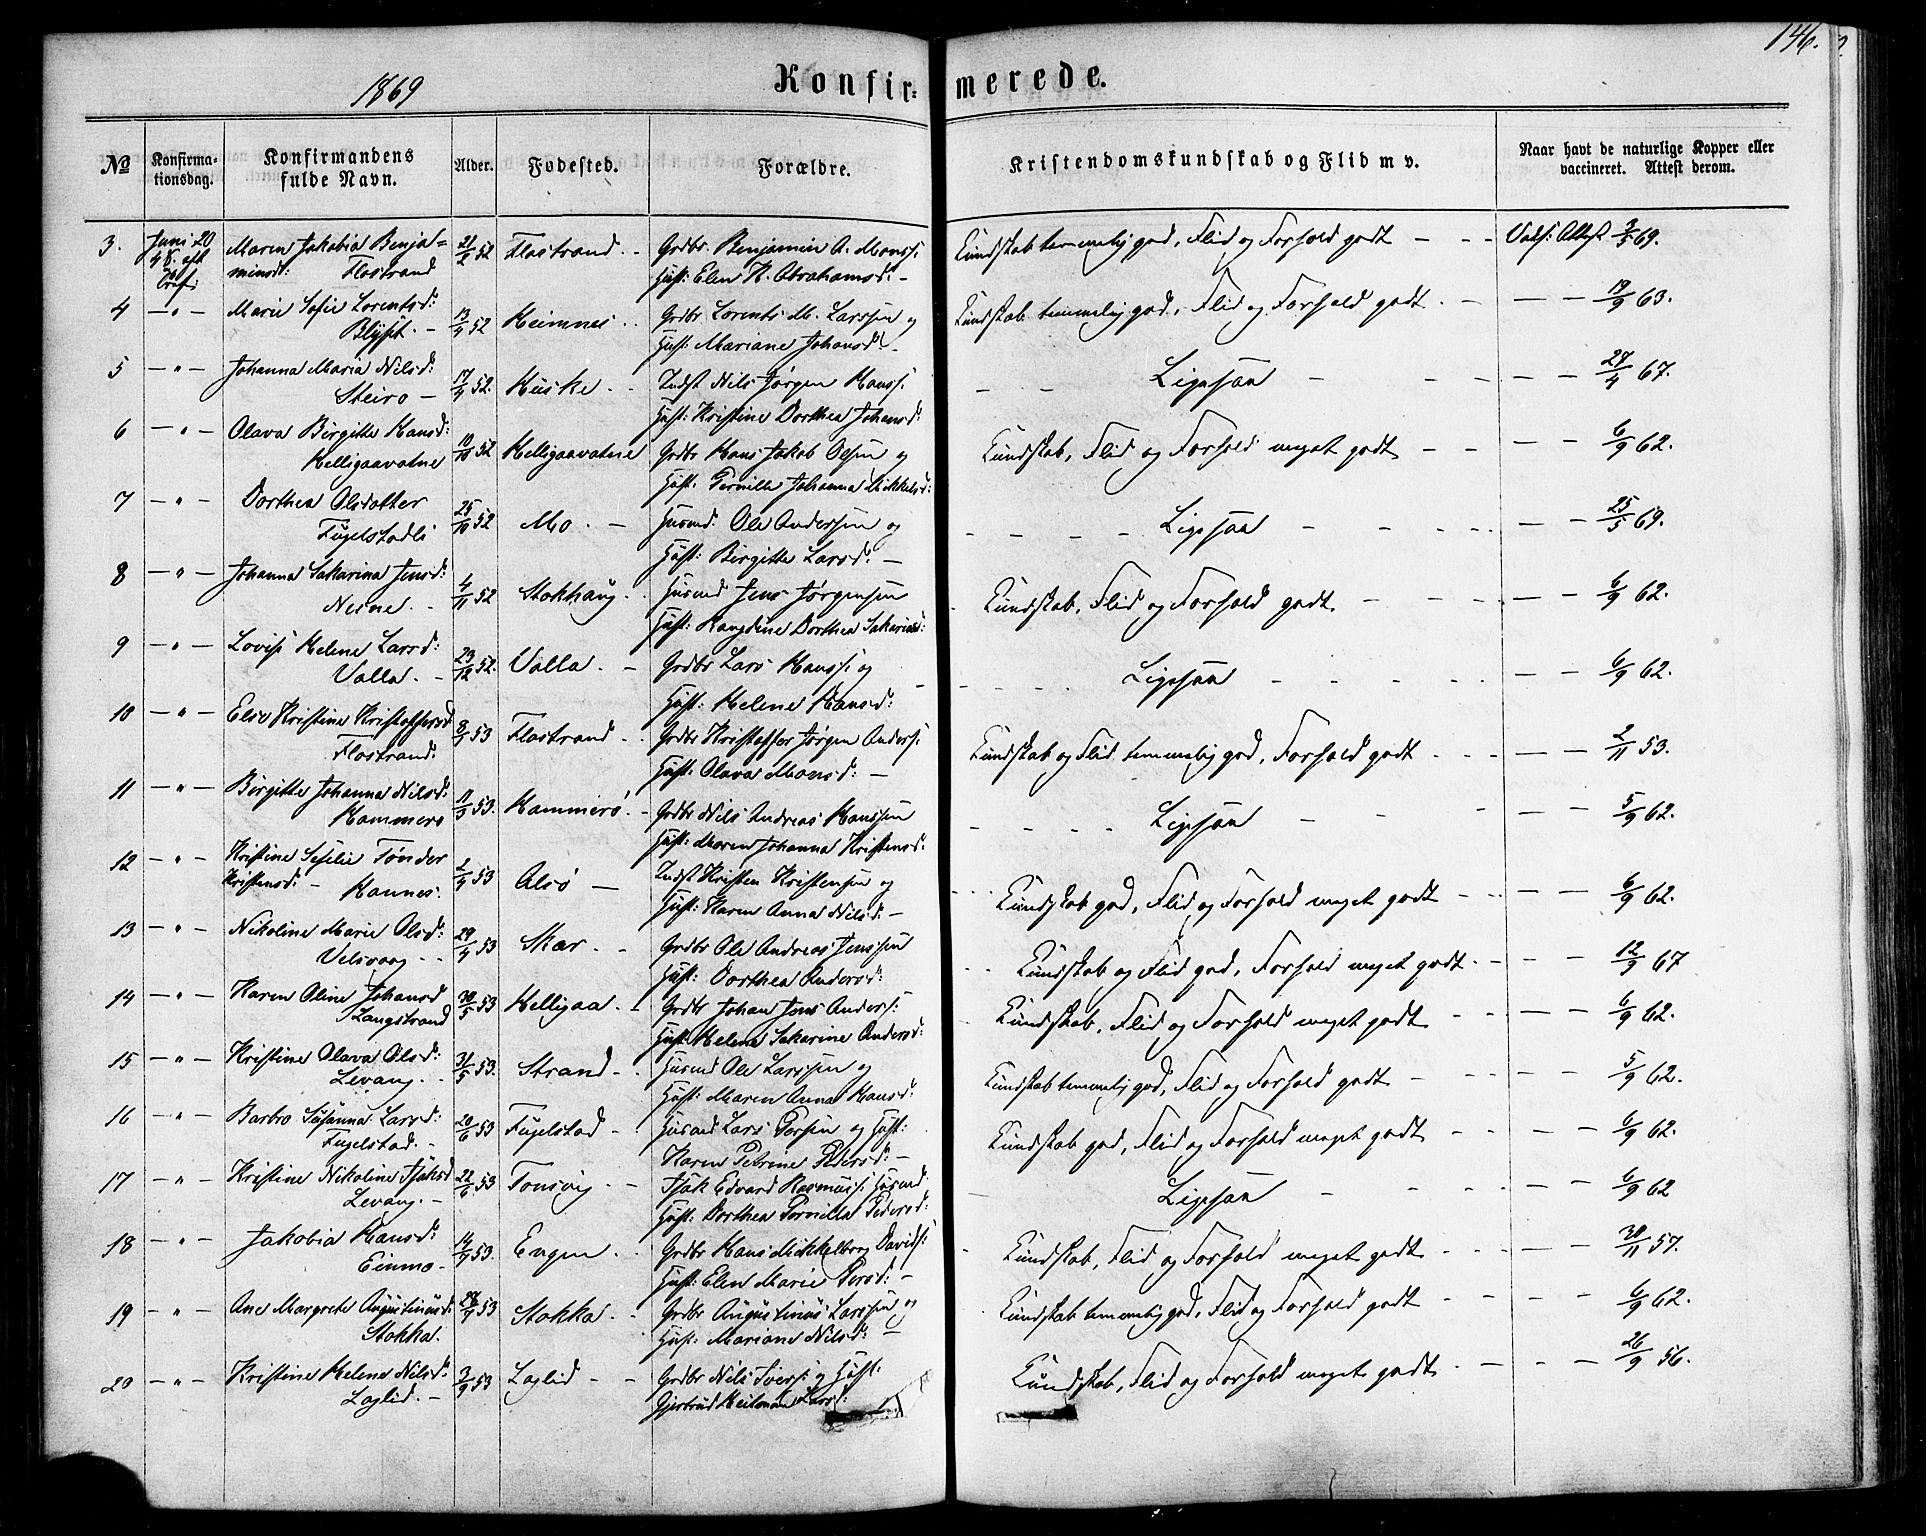 146.
1869
Konfir= merede.
No
Konfirma-
tionsdag.
Konfirmandens
fulde Navn.
Alder.
Fødested.
Forældre.
Kristendomskundskab og Flid m v.
Naar havt de naturlige Kopper eller
vaccineret. Attest derom.
3. Juni 20 Maren Jakobia Benja= 21/2 52 Flostrand. - Grdbr. Benjamin A. Monss: Kundskab temmelig god, Flid og Forhold godt - - - Vads: Attest 3/5 69.
4 S. eft. minsd: Flostrand Hust: Elen K. Abrahamsd: -
4 - " - Marie Sofie Lorentsd: 13/4 52 Heimnes. . Grdbr Lorents M. Larssen og Kundskab temmelig god, Flid og Forhold godt. - - - 19/9 63.
Blysit. - Hust: Mariane Johansd: -
5 - " - Johanna Maria Nilsd: 17/4 52. Huske. - Indst Nils Jørgen Hanss: - Ligesaa - - - - - 27/4 67.
Steiro - Hust: Kristine Dorthea Johansd:
6 - " - Olava Birgitte Hansd: 10/10 52 Helligaavatne Grdbr Hans Jakob Olsen og Kundskab, Flid og Forhold meget godt - - - - 6/9 62.
Helligaavatne Hust: Pernilla Johanna Mikkelsd:
7 - " - Dorthea Olsdatter 25/10 52 Mo. - Husmd: Ole Anderssen og - - - - Ligesaa - - - - - - 25/5 69.
Fugelstadli Hust: Birgitte Larsd: -
8 - " - Johanna Sakarina Jensd: 4/11 52 Stokhaug. . Husmd Jens Jørgensen Kundskab, Flid og Forhold godt - - - - - 6/9 62.
Nesne. . Hust: Dorthea Sakariasd:
9 - " - Lovise Helene Larsd: 23/12 52. Valla. - Grdbr Lars Hanss: og - - - - Ligesaa - - - - - - 6/9 62.
Valla. - Hust: Helene Hansd:
10 - " - Else Kristine Kristoffersd 53 Flostrand - - Grdbr Kristoffer Jørgen Anderss: Kundskab og Flid temmelig god, Forhold godt - - - - - 2/11 53.
Flostrand. Hust: Olava Monsd: -
11 - " - Birgitte Johanna Nilsd: 11/3 53. Hammerø. - Grdbr Nils Andreas Hanssen - - - - Ligesaa - - - - - 5/9 62.
Hammerø Hust: Maren Johanna Kristensd:
12 - " - Kristine Sesilie Tønder 2/4 53 Alsø - Indst Kristen Kristensen og Kundskab god, Flid og Forhold meget godt - - - - 6/9 62.
Kristensd: - Hannes. Hust: Karen Anna Nilsd: -
13 - " - Nikoline Marie Olsd: 29/4 53 Skar. - Grdbr Ole Andreas Jenssen Kundskab og Flid god, Forhold meget godt. - - - 12/9 67
Velsvaag - - Hust: Dorthea Andersd:
14 - " - Karen Oline Johansd 30/5 53 Helligaa. - Grdbr Johan Jens Anderss: Kundskab, Flid og Forhold meget godt - - - - 6/9 62.
Langstrand Hust: Helena Sakarine Andersd:
15 - " - Kristine Olava Olsd: 31/5 53. Strand - - Husmd Ole Larssen og Kundskab temmelig god, Flid og Forhold godt - - - - 5/9 62.
Levang. . Hust: Maren Anna Hansd:
16 - " - Barbro Susanna Larsd: 20/6 53 Fugelstad - Husmd Lars Persen og Hust: Kundskab god, Flid og Forhold meget godt - - - - 6/9 62.
Fugelstad. - Karen Petrine Pedersd: -
17 - " - Kristine Nikoline Isaksd 22/6 53 Tonsvig - - Isak Edvard Rasmuss: Husmd - Ligesaa - - - - - - 6/9 62
Levang. - Hust: Dorthea Pernilla Pedersd:
18 - " - Jakobia Hansd: 14/7 53. Engen. . Grdbr Hans Mikkelborg Davids: Kundskab, Flid og Forhold meget godt - - - - - 30/11 57.
Einmo - Hust: Elen Marie Persd: -
19 - " - Ane Margrete Augustinusd: 53 Stokka. . Grdbr Augustinus Larssen og Kundskab temmelig god, Flid og Forhold godt - - - - - 6/9 62.
Stokka. Hust: Mariane Nilsd: -
20 - " - Kristine Helene Nilsd: 2/9 53 Laglid - - Grdbr Nils Iverss: og Hust: Kundskab, Flid og Forhold meget godt. - - - - 26/9 56.
Laglid. - Gjertrud Larsd: